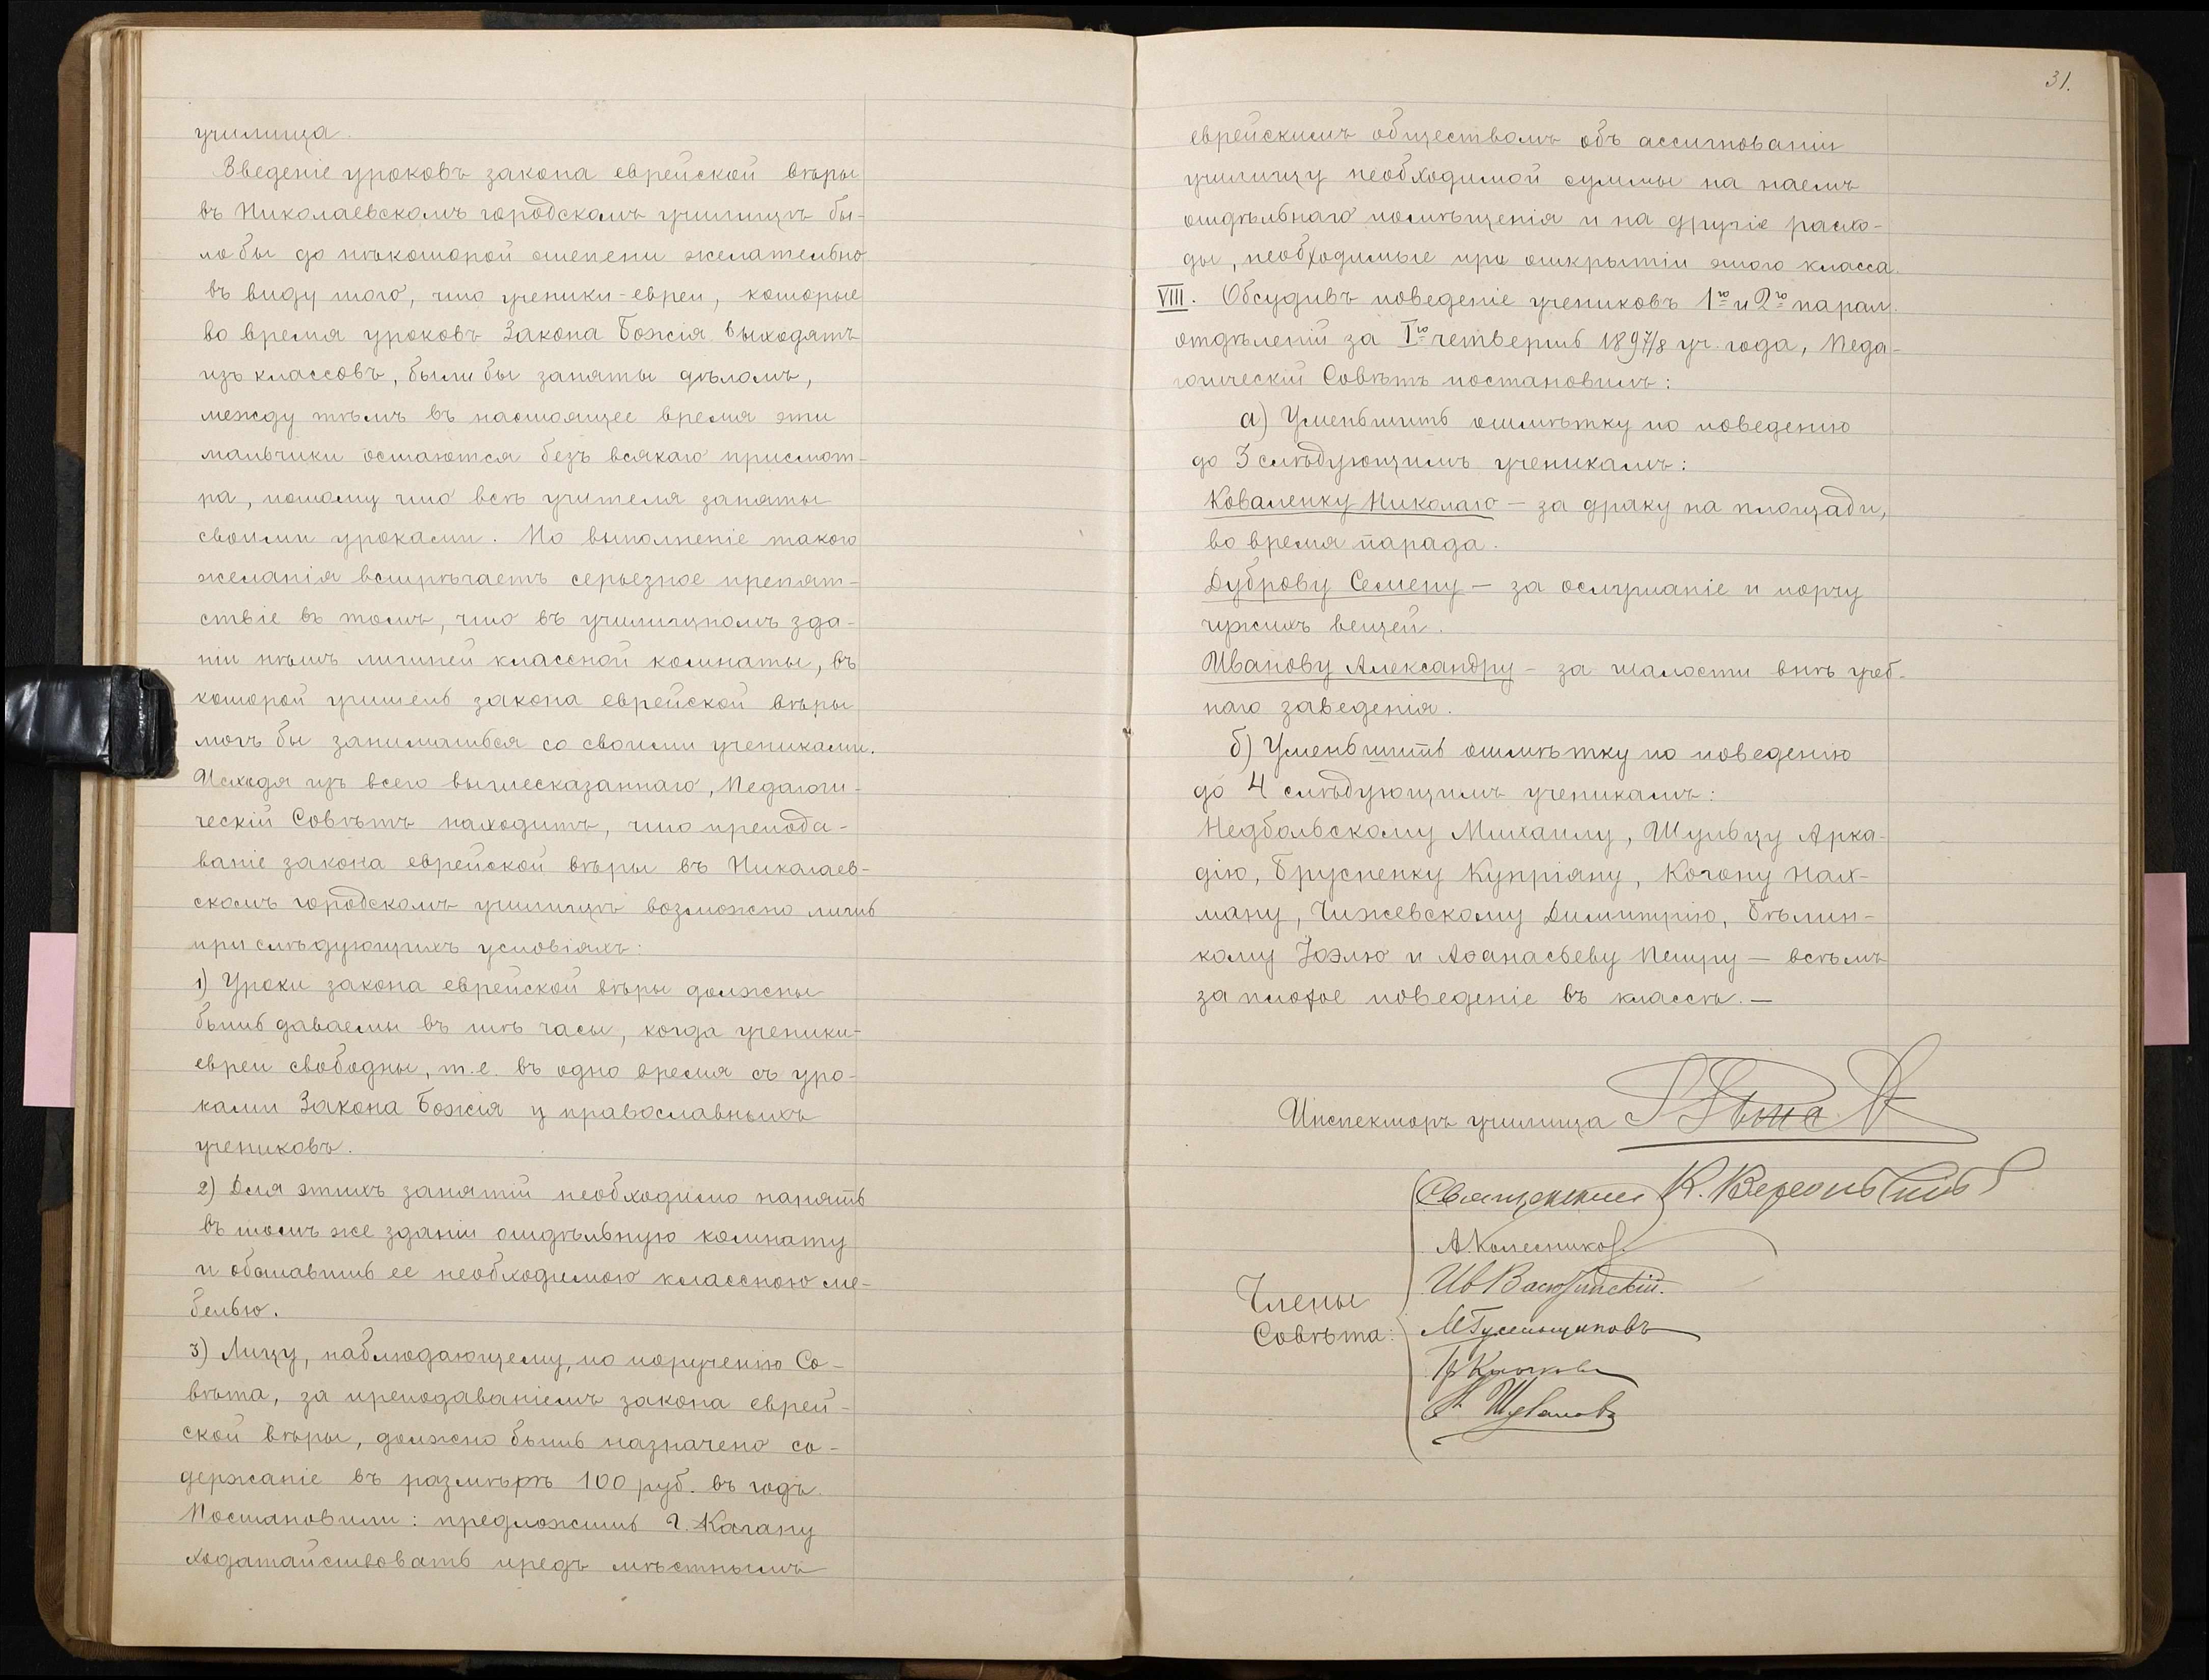 училища.
Введеніе уроковъ закона еврейской вѣры
въ Николаевскомъ городскомъ училищѣ бы-
ло бы до нѣкоторой степени желательно
въ виду того, что ученики-евреи, которые
во время уроковъ Закона Божія выходятъ
изъ классовъ, были бы заняты дѣломъ,
между тѣмъ въ настоящее время эти
мальчики остаются безъ всякаго присмот-
ра, потому что всѣ учителя заняты
своими уроками. Но выполненіе такого
желанія встрѣчаетъ серьезное препят-
ствіе въ томъ, что въ училищномъ зда-
ніи нѣтъ лишней классной комнаты, въ
которой учитель закона еврейской вѣры
могъ бы заниматься со своими учениками.
Исходя изъ всего вышесказаннаго, Педагоги-
ческій Совѣтъ находитъ, что препода-
ваніе закона еврейской вѣры въ Николаев-
скомъ городскомъ училищѣ возможно лишь
при слѣдующихъ условіяхъ:
1) Уроки закона еврейской вѣры должны
быть даваемы въ тѣ часы, когда ученики-
евреи свободны, т.е. въ одно время съ уро-
ками Закона Божія у православныхъ
учениковъ.
2) Для этихъ занятій необходимо нанять
въ томъ же зданіи отдѣльную комнату
и обставить ее необходимою классною ме-
белью.
3) Лицу, наблюдающему, по порученію Со-
вѣта, за преподаваніемъ закона еврей-
ской вѣры, должно быть назначено со-
держаніе въ размѣрѣ 100 руб. въ годъ.
Постановили: предложить г. Кагану
ходатайствовать предъ мѣстнымъ
31.
еврейскимъ обществомъ объ ассигнованіи
училищу необходимой суммы на наемъ
отдѣльнаго помѣщенія и на другіе расхо-
ды, необходимые при открытіи этого класса.
VIII. Обсудивъ поведеніе учениковъ 1го и 2го парал.
отдѣленій за Iю четверть 1897/8 уч. года, Педа-
гогическій Совѣтъ постановилъ:
а) Уменьшить отмѣтку по поведенію
до 3 слѣдующимъ ученикамъ:
Коваленку Николаю — за драку на площади,
во время парада.
Дуброву Семену — за ослушаніе и порчу
чужихъ вещей.
Иванову Александру — за шалости внѣ учеб-
наго заведенія.
б) Уменьшить отмѣтку по поведенію
до 4 слѣдующимъ ученикамъ:
Недбольскому Михаилу, Шульцу Арка-
дію, Бруспенку Купріяну, Когону Нах-
ману, Чижевскому Димитрію, Бѣлин-
кому Іоэлю и Аѳанасьеву Петру — всѣмъ
за плохое поведеніе въ классѣ. —
Инспекторъ училища
Священникъ К.
А. Колесников
Ив
Члены
Совѣта: